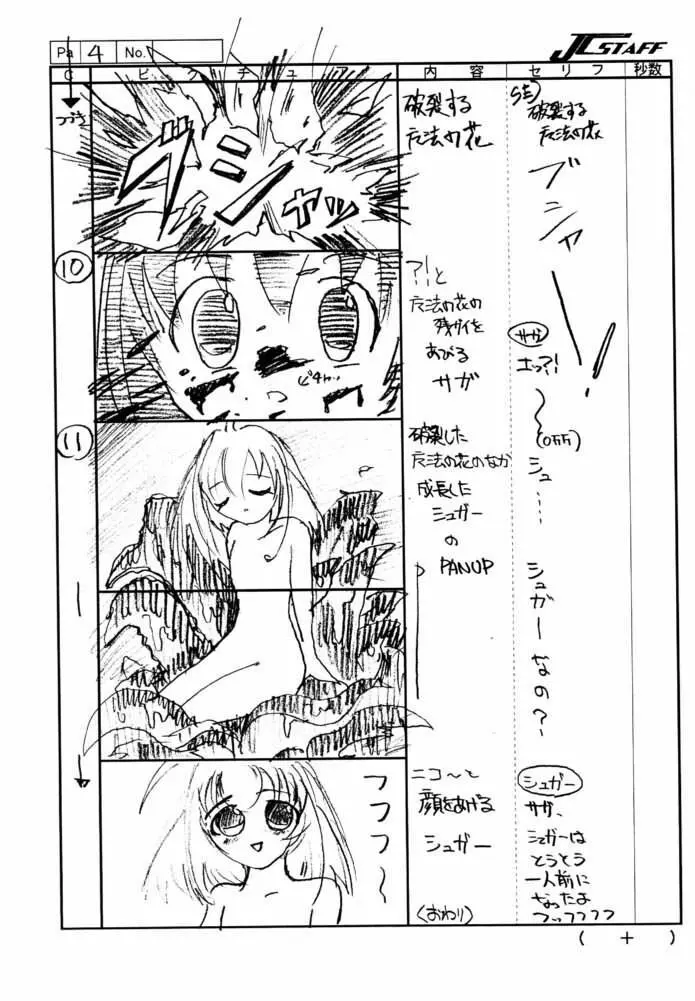 Pa 4 No.
JC STAFF
C ピクチュア 内容 セリフ 秒数
つづき
グシャッ
破裂する
魔法の花
SE
破裂する
魔法の花
ブシャーッ!
10
ピチャッ
?!と
魔法の花の
残ガイを
あびる
サガ
サガ
エっ?!
(OFF)
シュ……
シュガーなの?
11
破裂した
魔法の花のなか
成長した
シュガー
の
PANUP
フフフ〜
ニコ〜と
顔をあげる
シュガー
(おわり)
シュガー
サガ、
シュガーは
とうとう
一人前に
なったよ
フッフフフフ
( + )